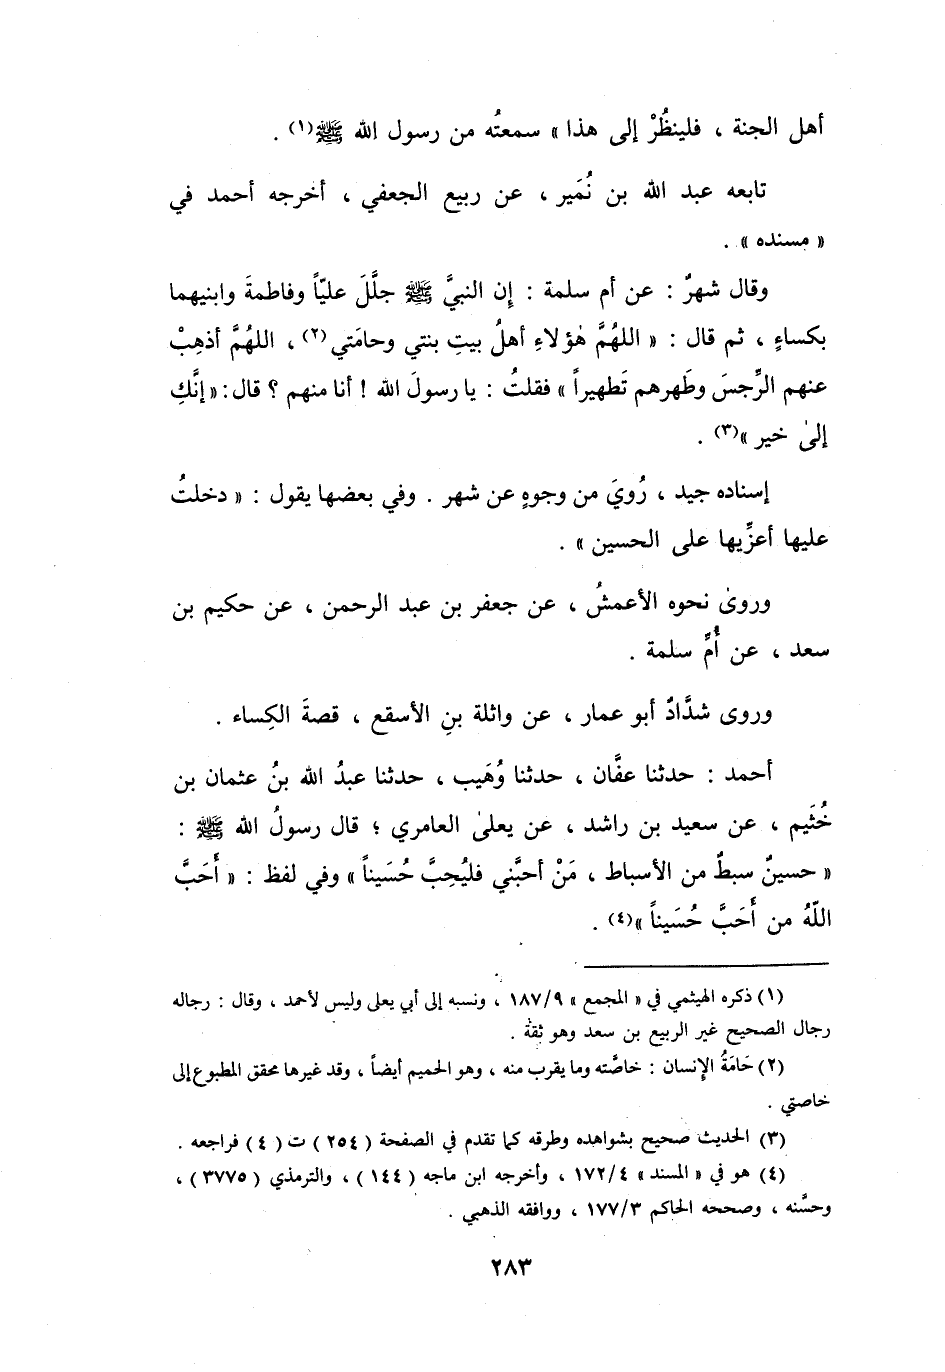 أهل الجنة ، فلينظُرْ إلى هذا » سمعتُه من رسول الله ﷺ(١) .
تابعه عبد الله بن نُمَير ، عن ربيع الجعفي ، أخرجه أحمد في
« مسنده » .
وقال شهرٌ : عن أم سلمة : إن النبيَّ ﷺ جلَّلَ عليّاً وفاطمةَ وابنيهما
بكساءٍ ، ثم قال : « اللهُمَّ هٰؤلاءِ أهلُ بيتِ بنتي وحامَتي(٢) ، اللهُمَّ أذهِبْ
عنهم الرِّجسَ وطَهرهم تَطهيراً » فقلتُ : يا رسولَ الله ! أنا منهم ؟ قال : « إنَّكِ
إلىٰ خير »(٣) .
إسناده جيد ، رُويَ من وجوهٍ عن شهر . وفي بعضها يقول : « دخلتُ
عليها أعزِّيها على الحسين » .
وروىٰ نحوه الأعمشُ ، عن جعفر بن عبد الرحمن ، عن حكيم بن
سعد ، عن أُمِّ سلمة .
وروى شدَّادٌ أبو عمار ، عن واثلة بنِ الأسقع ، قصةَ الكِساء .
أحمد : حدثنا عفَّان ، حدثنا وُهَيب ، حدثنا عبدُ الله بنُ عثمان بن
خُثَيم ، عن سعيد بن راشد ، عن يعلىٰ العامري ؛ قال رسولُ الله ﷺ :
« حسينٌ سبطٌ من الأسباط ، مَنْ أحبَّني فليُحِبَّ حُسَيناً » وفي لفظ : « أَحَبَّ
اللّهُ من أَحَبَّ حُسَيناً »(٤) .
(١) ذكره الهيثمي في « المجمع » ١٨٧/٩ ، ونسبه إلى أبي يعلى وليس لأحمد ، وقال : رجاله
رجال الصحيح غير الربيع بن سعد وهو ثقة .
(٢) حَامَةُ الإنسان : خاصَّته وما يقرب منه ، وهو الحميم أيضاً ، وقد غيرها محقق المطبوع إلى
خاصتي .
(٣) الحديث صحيح بشواهده وطرقه كما تقدم في الصفحة ( ٢٥٤ ) ت ( ٤ ) فراجعه .
(٤) هو في « المسند » ١٧٢/٤ ، وأخرجه ابن ماجه ( ١٤٤ ) ، والترمذي ( ٣٧٧٥ ) ،
وحسَّنه ، وصححه الحاكم ١٧٧/٣ ، ووافقه الذهبي .
٢٨٣